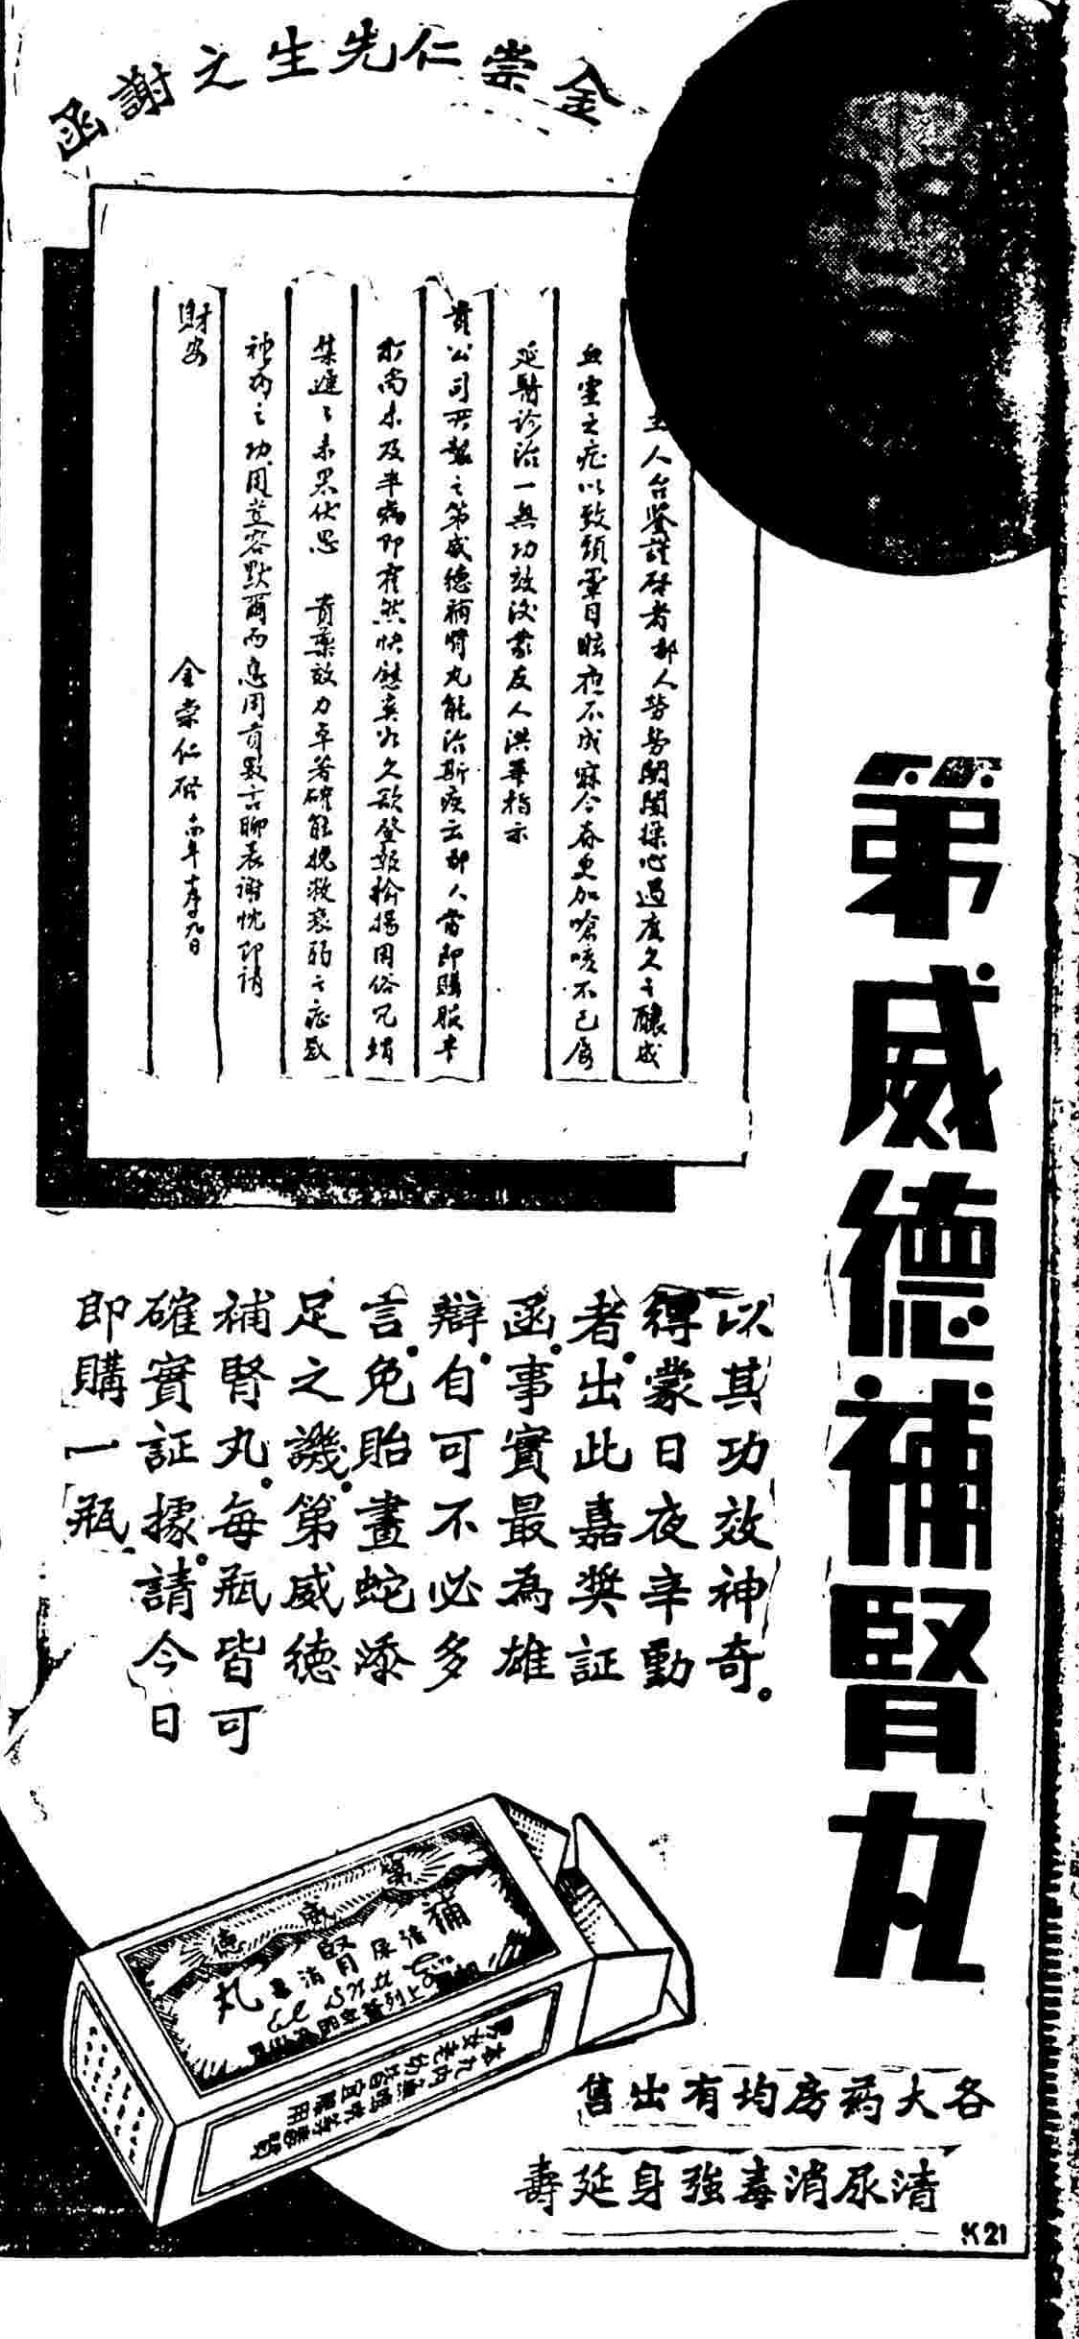 金崇仁先生之謝函
主人台鑒謹啓者鄙人勞勞闤闠操心過度久之釀成
血虛之症以致頭暈目眩夜不成寐今春更加嗆咳不已屢
延醫診治一無功效後蒙友人洪華指示
貴公司所製之第威德補腎丸能治斯疾云鄙人當即購服半
打尚未及半病即霍然快慰奚似久欲登報揄揚因俗冗蝟
集遲遲未果伏思 貴藥效力卓著確能挽救衰弱之症致
神效之功用豈容默爾而息用首數言聊表謝忱即請
財安
金崇仁啓
第威德補腎丸
以其功效神奇。
得蒙日夜辛勤
者。出此嘉獎証
函。事實最為雄
辯。自可不必多
言。免貽畫蛇添
足之譏。第威德
補腎丸。每瓶皆可
確實証據。請今日
即購一瓶。
第威德
補腎丸
清尿消毒
各大葯房均有出售
清尿消毒強身延壽
K21